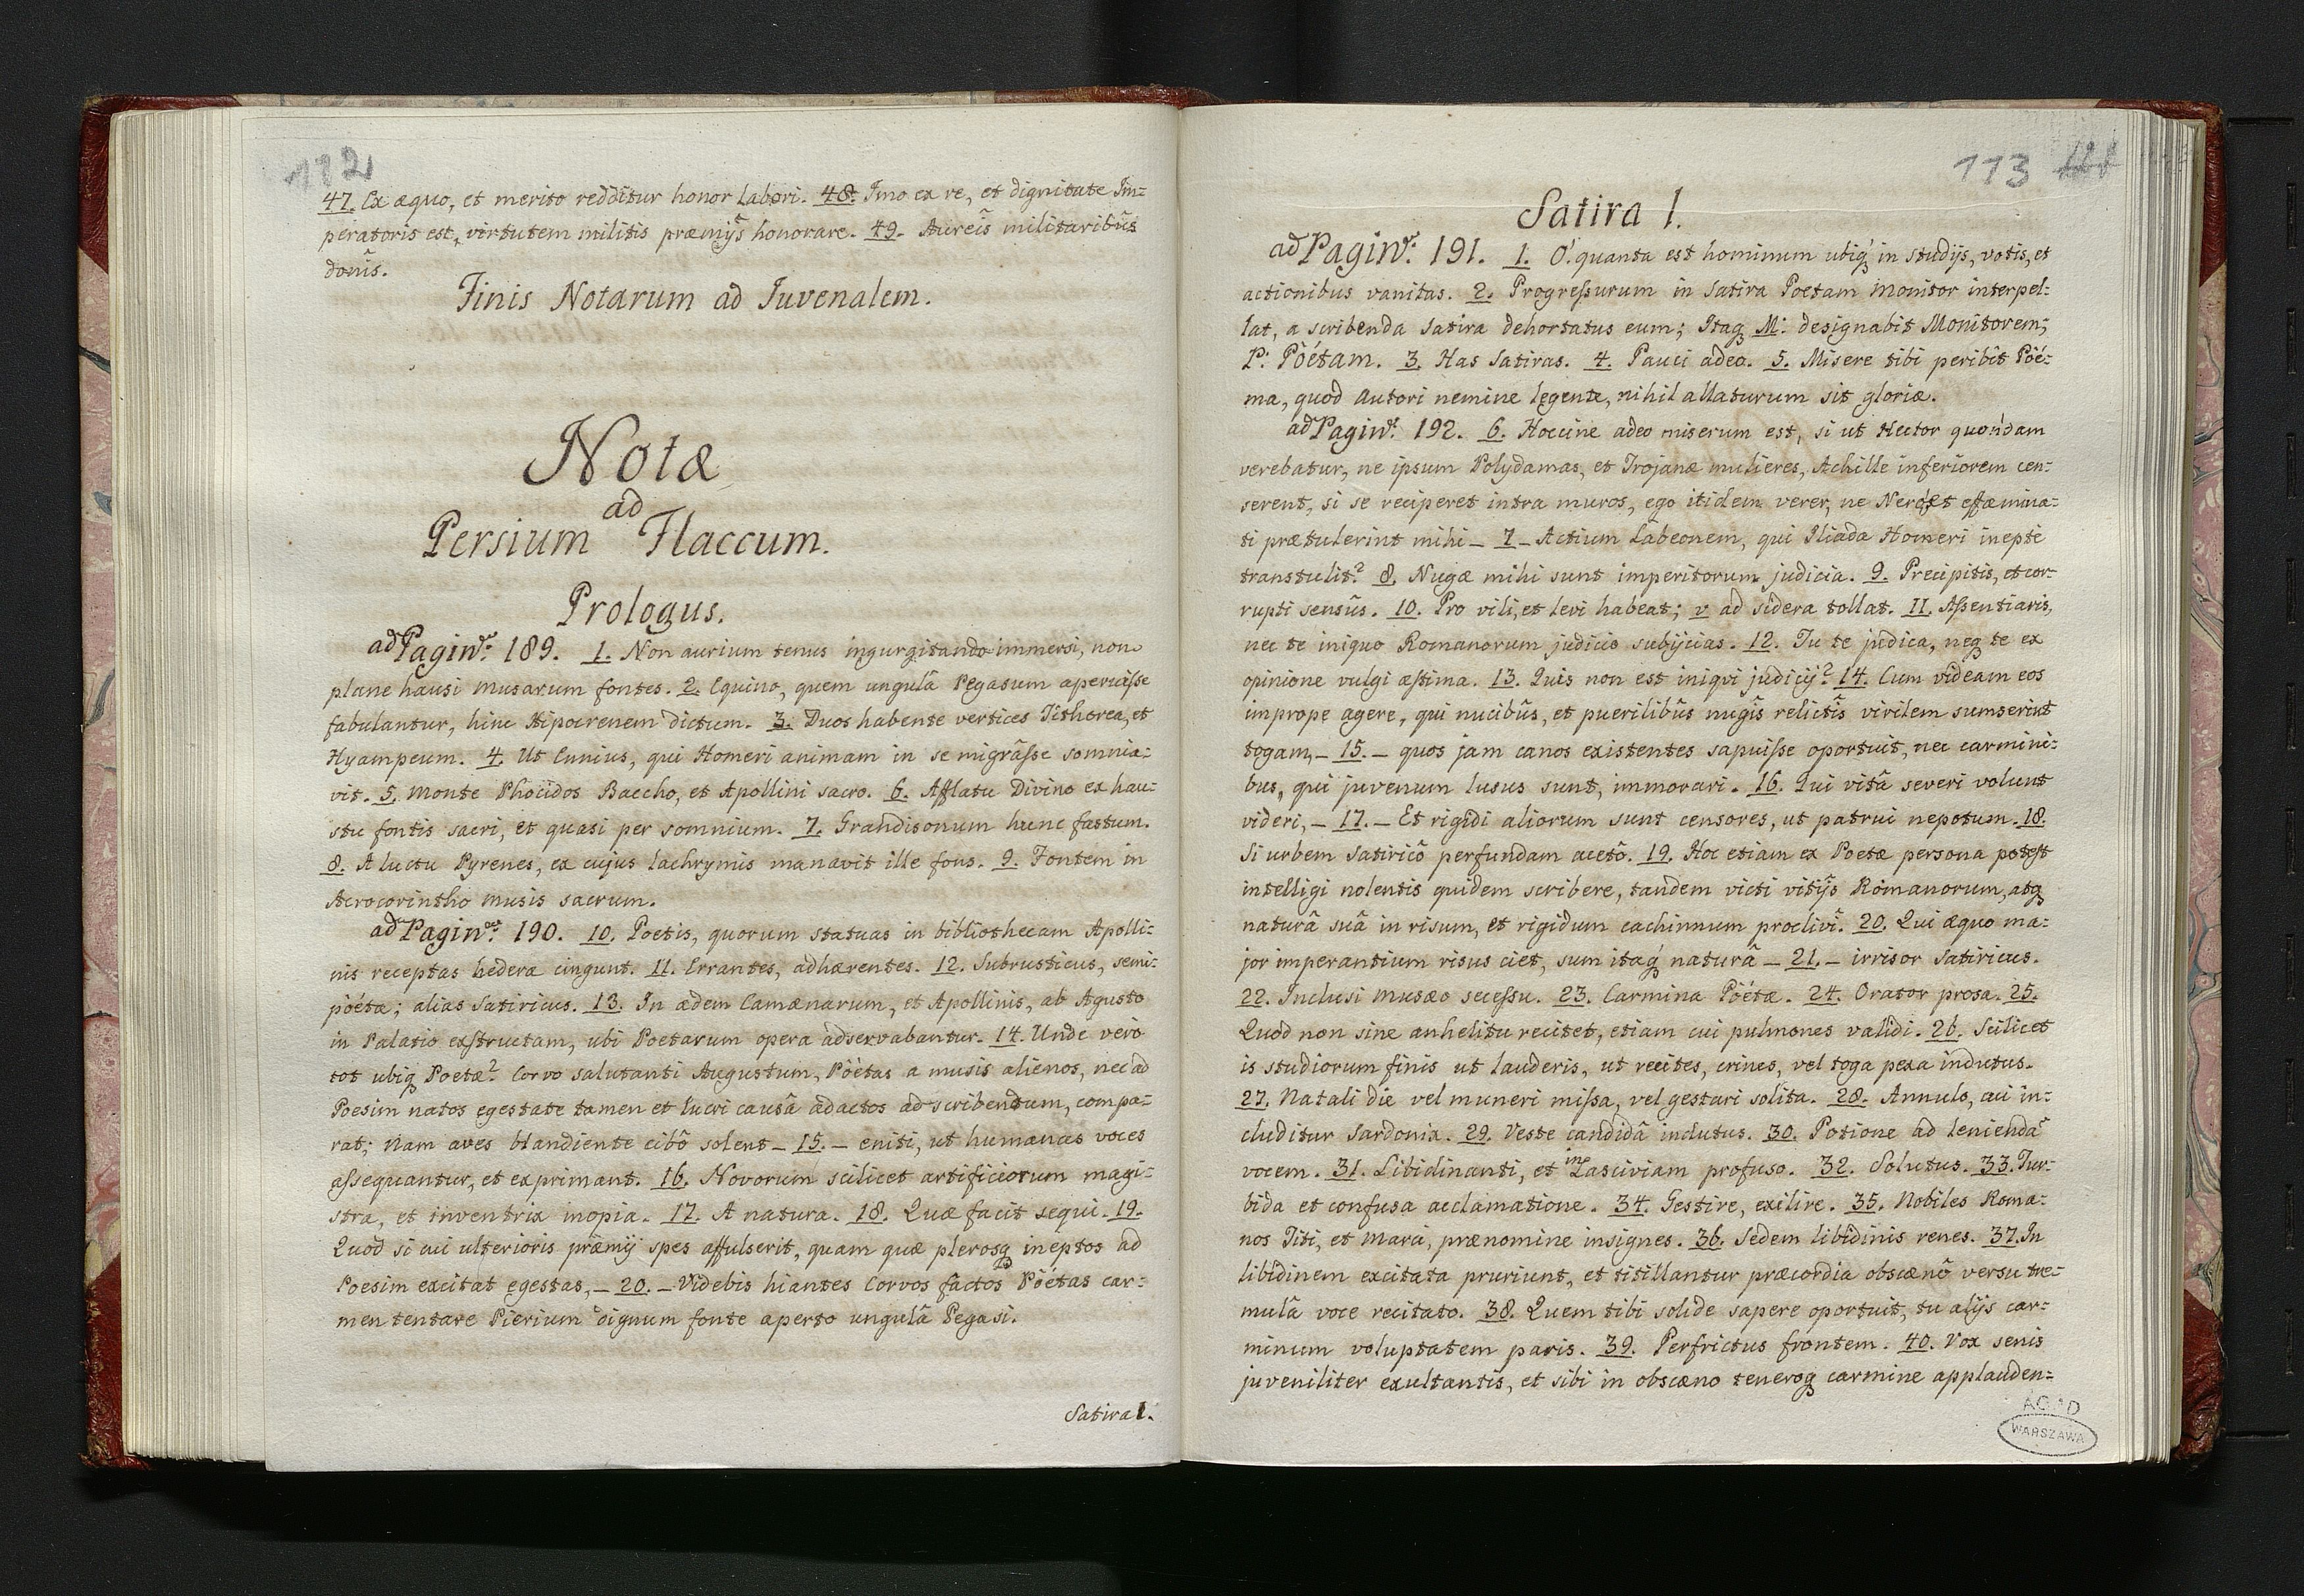 112
47. Ex æquo, et merito redditur honor Labori. 48. Imo ex re, et dignitate Im-
peratoris est, virtutem militis præmijs honorare. 49. Aureis militaribûs
donîs.
Finis Notarum ad Juvenalem.
Notæ
ad
Persium Flaccum.
Prologus.
ad Pagin. 189. 1. Non aurium tenus ingurgitando immersi, non
plane hausi Musarum fontes. 2. Equino, quem ungulâ Pegasum aperuisse
fabulantur, hinc Hipocrenem dictum. 3. Duos habente vertices Tithorea, et
Hyampeum. 4. Ut Ennius, qui Homeri animam in se migrâsse somnia-
vit. 5. Monte Phocidos Baccho, et Apollini sacro. 6. Afflatu Divino ex hau-
stu fontis sacri, et quasi per somnium. 7. Grandisonum hunc fastum.
8. A luctu Pyrenes, ex cujus lachrymis manavit ille fons. 9. Fontem in
Acrocorintho Musis sacrum.
ad Pagin. 190. 10. Poetis, quorum statuas in bibliothecam Apolli-
nis receptas hedera cingunt. 11. Errantes, adhærentes. 12. Subrusticus, semi-
pöéta; alias Satiricus. 13. In ædem Camænarum, et Apollinis, ab Agusto
in Palatio exstructam, ubi Poetarum opera adservabantur. 14. Unde vero
tot ubiq Poetæ? Corvo salutanti Augustum, Pöétas a musis alienos, nec ad
Poesim natos egestate tamen et lucri causâ adactos ad scribendum, compa-
rat; Nam aves blandiente cibô solent _ 15. _ eniti, ut humanas voces
assequantur, et exprimant. 16. Novorum scilicet artificiorum magi-
stra, et inventrix inopia. 17. A natura. 18. Quæ facit sequi. 19.
Quod si cui ulterioris præmij spes affulserit, quam quæ plerosq ineptos ad
Poesim excitat egestas, _ 20. _ Videbis hiantes Corvos factos Pöétas car-
men tentare Pierium dignum fonte aperto ungulâ Pegasi.
Satira 1.
113
Satira 1.
ad Pagin. 191. 1. O! quanta est hominum ubiq in studijs, votis, et
actionibus vanitas. 2. Progressurum in Satira Poetam Monitor interpel-
lat, a scribenda Satira dehortatus eum; Itaq M: designabit Monitorem;
P: Pöétam. 3. Has Satiras. 4. Pauci adeo. 5. Misere tibi peribit Pöé-
ma, quod Autori nemine legente, nihil allaturum sit gloriæ.
ad Pagin. 192. 6. Hoccine adeo miserum est, si ut Hector quondam
verebatur, ne ipsum Polydamas, et Trojanæ mulieres, Achille inferiorem cen-
serent, si se reciperet intra muros, ego itidem verer, ne Nero et effæmina-
ti prætulerint mihi _ 7 _ Actium Labeonem, qui Iliada Homeri inepte
transtulit? 8. Nugæ mihi sunt imperitorum judicia. 9. Precipitis, et cor-
rupti sensûs. 10. Pro vili, et levi habeat; v ad sidera tollat. 11. Assentiaris,
nec te iniquo Romanorum judicio subijcias. 12. Tu te judica, neq te ex
opinione vulgi æstima. 13. Quis non est iniqvi judicij? 14. Cum videam eos
improp̱e agere, qui nucibûs, et puerilibûs nugîs relictîs virilem sumserint
togam, _ 15. _ quos jam canos existentes sapuisse oportuit, nec carmini-
bus, qui juvenum lusus sunt, immorari. 16. Qui vitâ severi volunt
videri, _ 17. _ Et rigidi aliorum sunt censores, ut patrui nepotum. 18.
Si urbem Satiricô perfundam acetô. 19. Hoc etiam ex Poetæ persona potest
intelligi nolentis quidem scribere, tandem victi vitijs Romanorum, atq
naturâ suâ in risum, et rigidum cachinnum proclivi. 20. Qui æquo ma-
jor imperantium risus ciet, sum itaq naturâ _ 21. _ irrisor Satiricus.
22. Inclusi Musæo secessu. 23. Carmina Pöétæ. 24. Orator prosa. 25.
Quod non sine anhelitu recitet, etiam cui pulmones validi. 26. Scilicet
is studiorum finis ut lauderis, ut recites, crines, vel toga pexa indutus.
27. Natali die vel muneri missa, vel gestari solita. 28. Annulo, cui in-
cluditur Sardonix. 29. Veste candidâ indutus. 30. Potione ad leniendâ
vocem. 31. Libidinanti, et in Lasciviam profuso. 32. Solutus. 33. Tur-
bida et confusa acclamatione. 34. Gestire, exilire. 35. Nobiles Roma-
nos Titi, et Marci, prænomine insignes. 36. Sedem libidinis renes. 37. In
libidinem excitata pruriunt, et titillantur præcordia obscænô versu tre-
mulâ voce recitato. 38. Quem tibi solide sapere oportuit, tu alijs car-
minum voluptatem paris. 39. Perfrictus frontem. 40. Vox senis
juveniliter exultantis, et sibi in obscæno teneroq carmine applauden-
AGAD
WARSZAWA